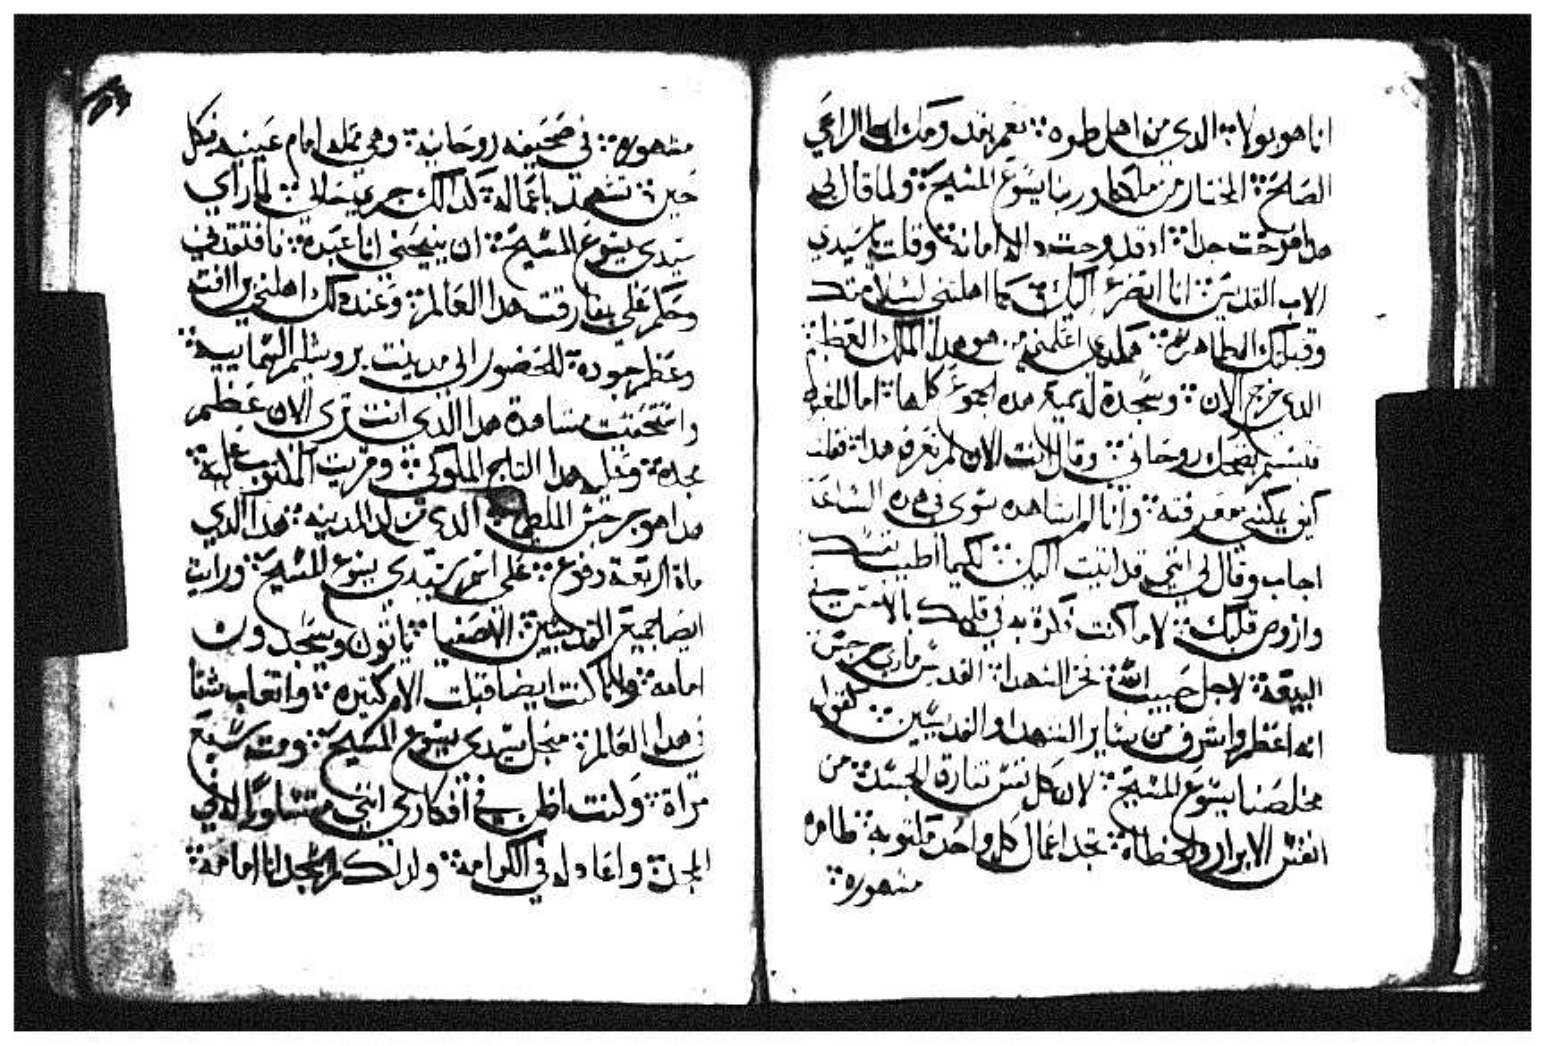 انا هو بولا ܀ الدي من اهل طوه ܀ نعم بقدومك ايها الراعي
الصلح ܀ المختار من ملكنا وربنا يسوع المسيح ܀ ولما قال لي
هدا فرحت جدا ܀ وقلت يا سيدي
الاب القديس ܀ انا اتضرع اليك ܀ كما اهلتني لسلامتك
وقبلتك الطاهره ܀ هو هدا الملك العظيم
الدي خرج الان ܀ وسجدة له جميع هده الجموع كلها ܀ اما
فتبسم بضحك روحاني ܀ وقال انت الان لم تعرف هدا ܀ فقلت
كيف يمكنني معرفته ܀ وانا لم اشاهده سوى في هده الساعة
اجاب وقال لي انني قد اتيت اليك ܀ لكيما اطيب نفسك
قلبك ܀ لاما كنت دكرة به في قلبك بالامس في
البيعة ܀ لاجل حبيب الله ܀ فخر الشهدا ܀ القديس ماري جرجس ܀
انه اعظم واشرف من ساير الشهدا والقديسين ܀ كقول
مخلصنا يسوع المسيح ܀ لان كل نفس الجسد ܀ من
انفس الابرار والخطاة ܀ تجد اعمال كل واحد مكتوبه ܀ ظاهره
مشهوره ܀
مشهوره ܀ في صحيفه روحانية ܀ وهي امام عينيه في كل
حين ܀ تشهد باعماله ܀ كدالك جرى حالي ܀ لما راي
سيدي يسوع المسيح ܀ ان ينيحني انا عبده ܀ فافتقدني
وحكم علي بمفارقت هدا العالم ܀ وعند دلك اهلني
وعظم جوده ܀ للحضور الى مدينت يروشليم السماييه ܀
واستحقيت مشاهدة هدا الدي انت ترى الان عظم
مجده ܀ وعلى هدا التاج الملوكي ܀ وقريت المكتوب عليه ܀
هدا هو جرجس الملطي الدي من لد المدينه ܀ هدا الدي
على اسم سيدي يسوع المسيح ܀ ورايت
ايضا جميع القديسين الاصفيا ܀ ياتون ويسجدون
امامه ܀ ولانا كنت ايضا قبلت الام كتيره ܀ واتعاب شتا
في هدا العالم ܀ من اجل سيدي يسوع المسيح ܀ ومت سبع
مراة ܀ وكنت اظن في افكاري انني متساويا له في
المجد ܀ واعادله في الكرامه ܀ ولدلك لم اسجد انا امامه ܀